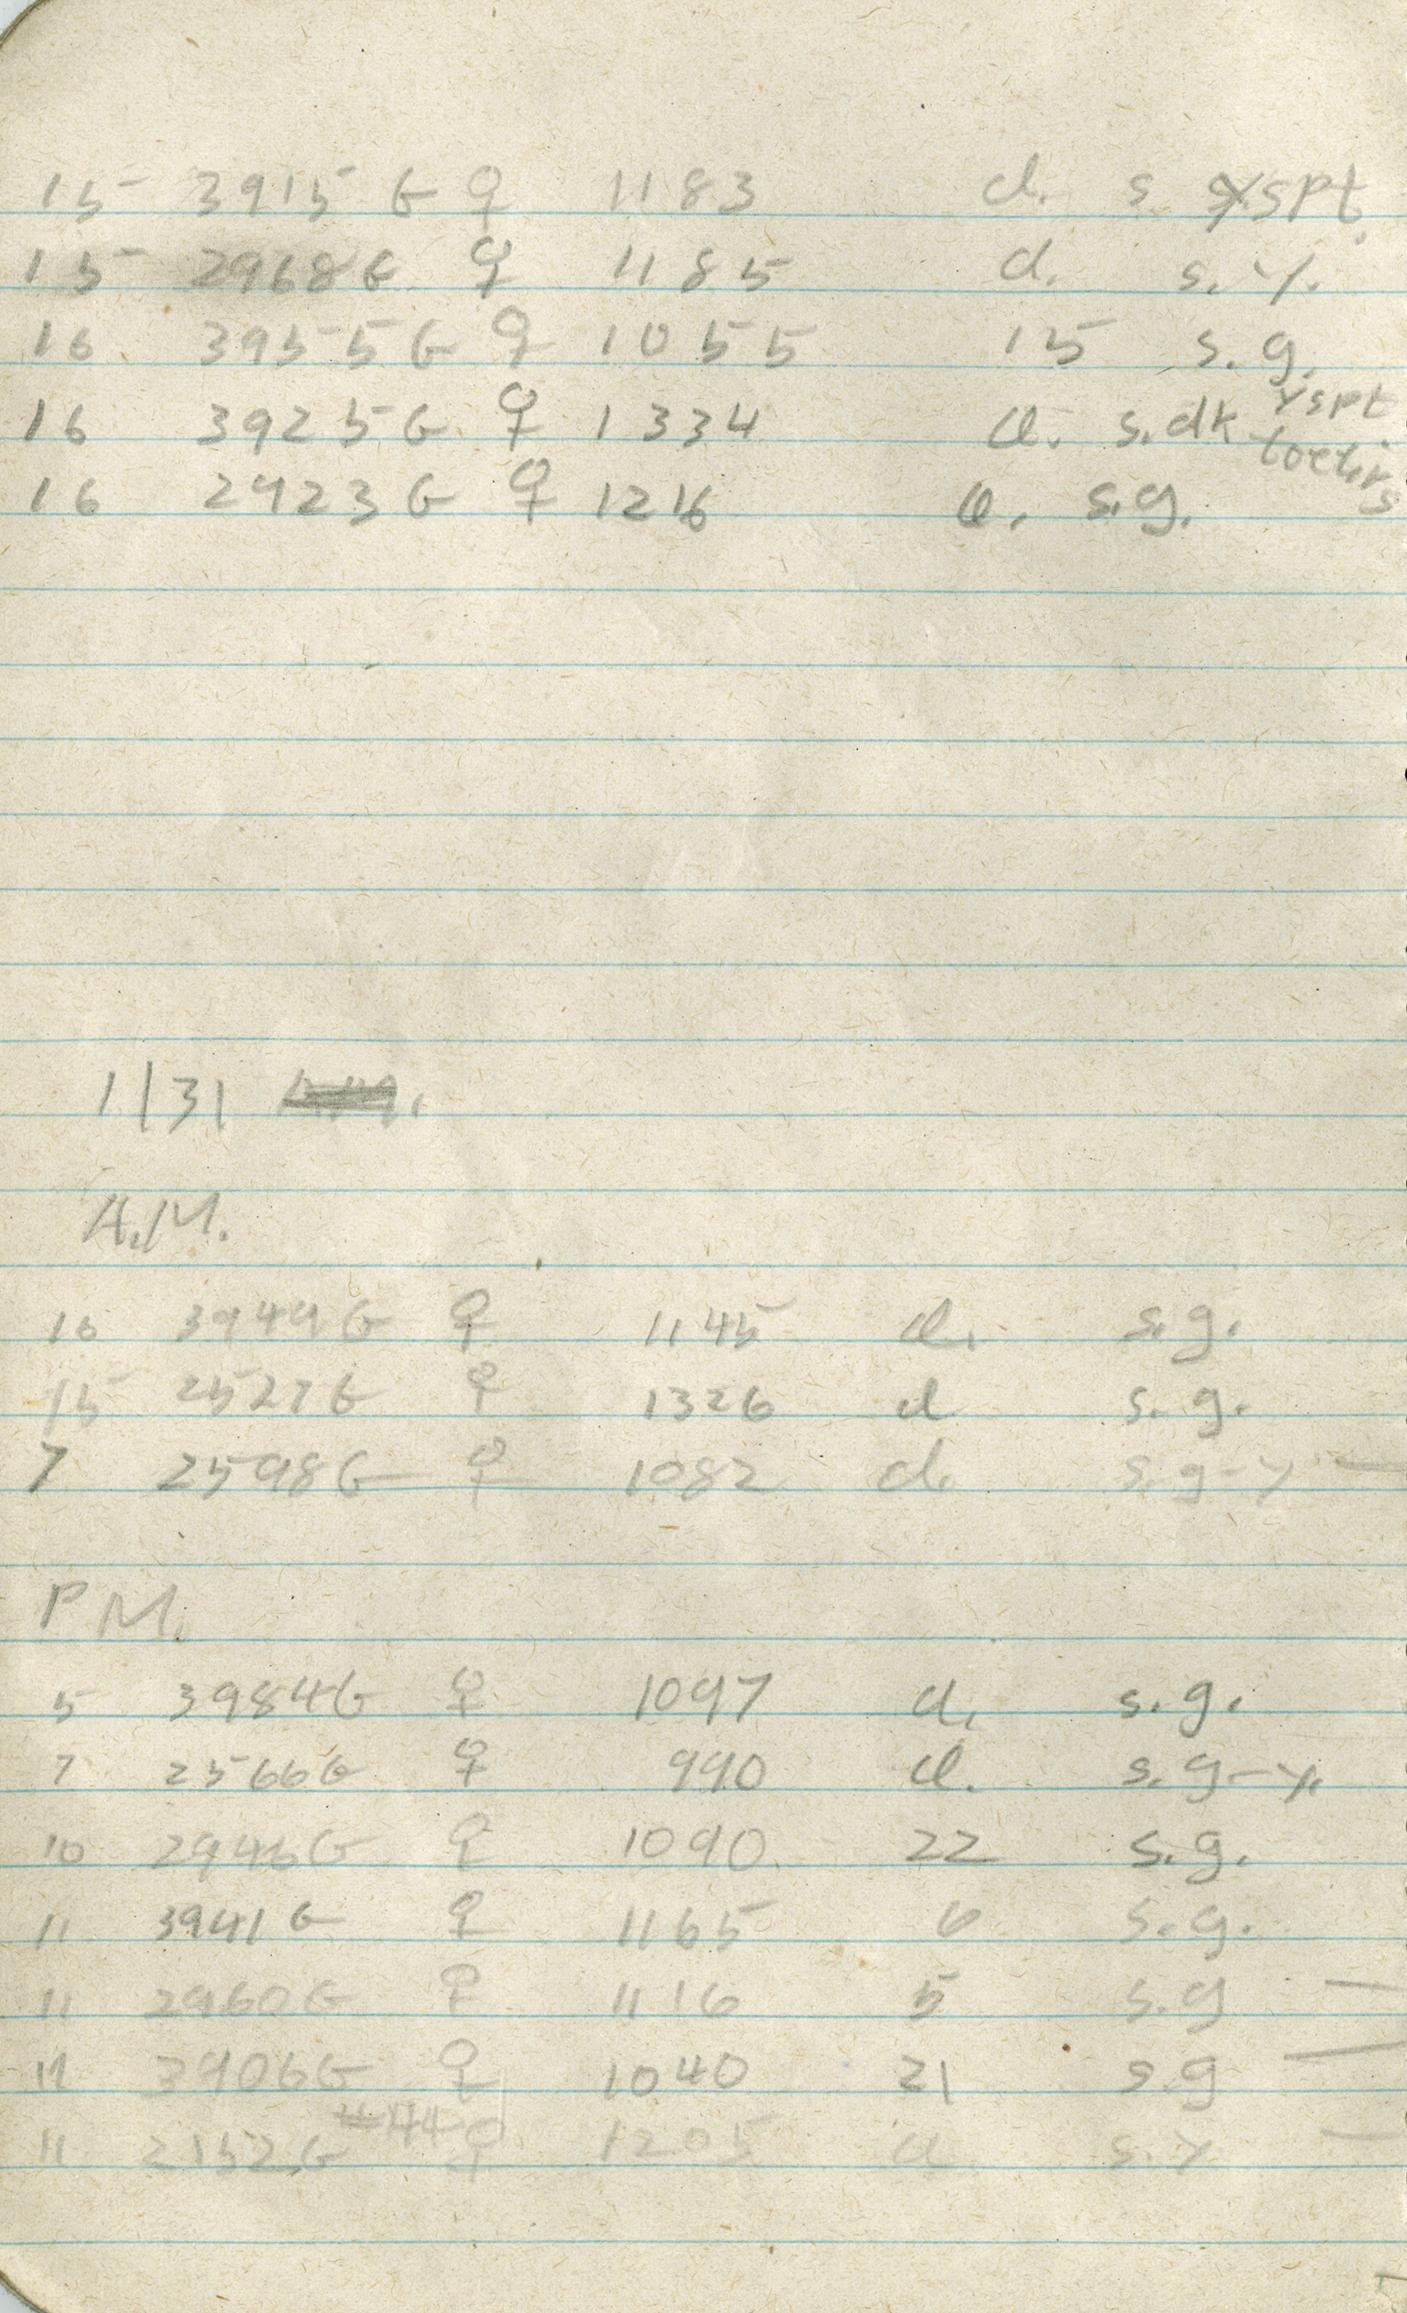 15 3915 G ♀ 1183 d. s. yspt.
15 2968 G ♀ 1185 d. s. y.
16 3955 G ♀ 1055 15 s. g.
16 3925 G ♀ 1334 d. s. dk yspt
16 2923 G ♀ 1216 d. s.g.
1/31
A.M.
16 3949 G ♀ 1145 d. s.g.
15 2527 G ♀ 1326 d s. g.
7 2598 G ♀ 1082 d. s. g-y —
P M.
5 3984 G ♀ 1097 d. s. g.
7 2566 G ♀ 990 d. s. g-y.
10 2946 G ♀ 1090 22 s. g.
11 3941 G ♀ 1165 6 s. g.
11 2960 G ♀ 1116 5 s. g —
11 3906 G ♀ 1040 21 s. g —
11 2152 G #44 ♀ 1205 d s. y —